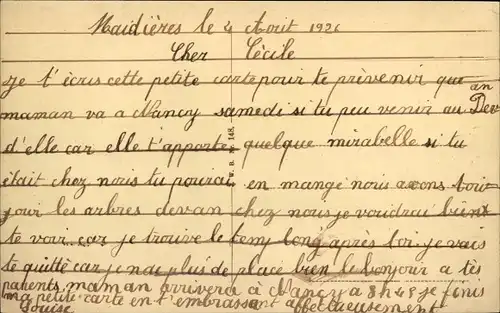 Maidières le 4 Aout 1926
Cher Cécile
je t'écris cette petite carte pour te prévenir que
maman va a Nancy samedi si tu peu venir au an Dev
d'elle car elle t'apporte quelque mirabelle si tu
était chez nous tu pourai en mangé nous avons touj
jour les arbres devan chez nous je voudrai bient
te voir car je trouve le temp long après toi je vais
te quitté car je nai plus de place bien le bonjour a tes
parents maman arrivera à Nancy a 8 h 45 je finis
ma petite carte en t'embrassant affectueusement
Louise